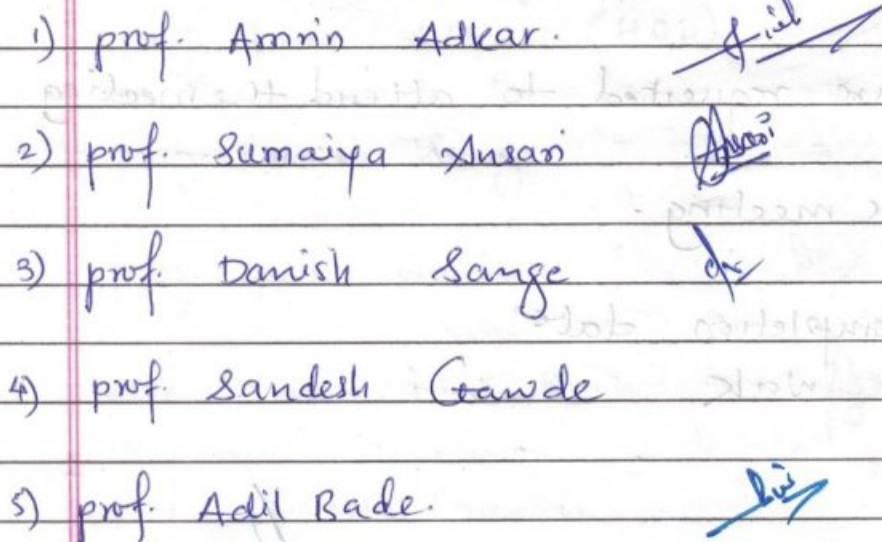 1) prof. Amrin Adkar.
2) prof. Sumaiya Ansari Ansari
3) prof. Danish Sange
4) prof. Sandesh Gawde
5) prof. Adil Bade.